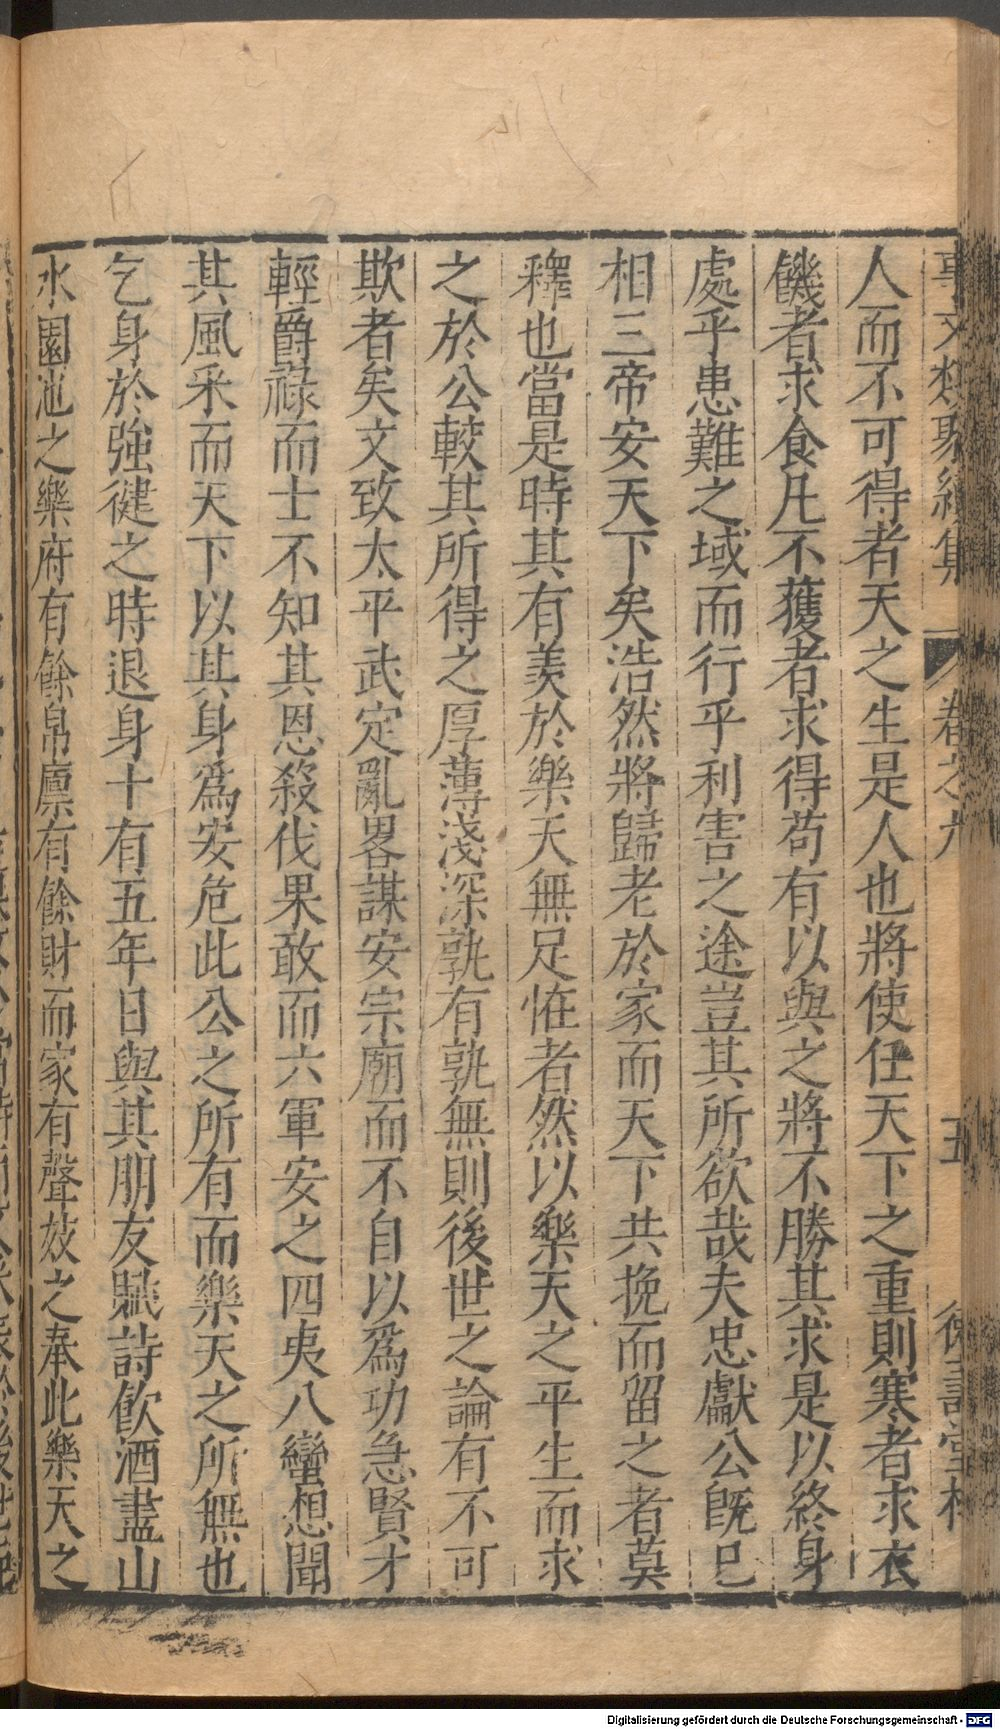 事文類聚續集 卷之六 五 德壽堂梓
人而不可得者天之生是人也將使任天下之重則寒者求衣
饑者求食凡不獲者求得苟有以與之將不勝其求是以終身
處乎患難之域而行乎利害之途豈其所欲哉夫忠獻公旣已
相三帝安天下矣浩然將歸老於家而天下共挽而留之者莫
釋也當是時其有羨於樂天無足怪者然以樂天之平生而求
之於公較其所得之厚薄淺深孰有孰無則後世之論有不可
欺者矣文致太平武定亂畧謀安宗廟而不自以爲功急賢才
輕爵祿而士不知其恩殺伐果敢而六軍安之四夷八蠻想聞
其風采而天下以其身爲安危此公之所有而樂天之所無也
乞身於強健之時退身十有五年日與其朋友賦詩飲酒盡山
水園池之樂府有餘帛廪有餘財而家有聲妓之奉此樂天之
Digitalisierung gefördert durch die Deutsche Forschungsgemeinschaft - DFG